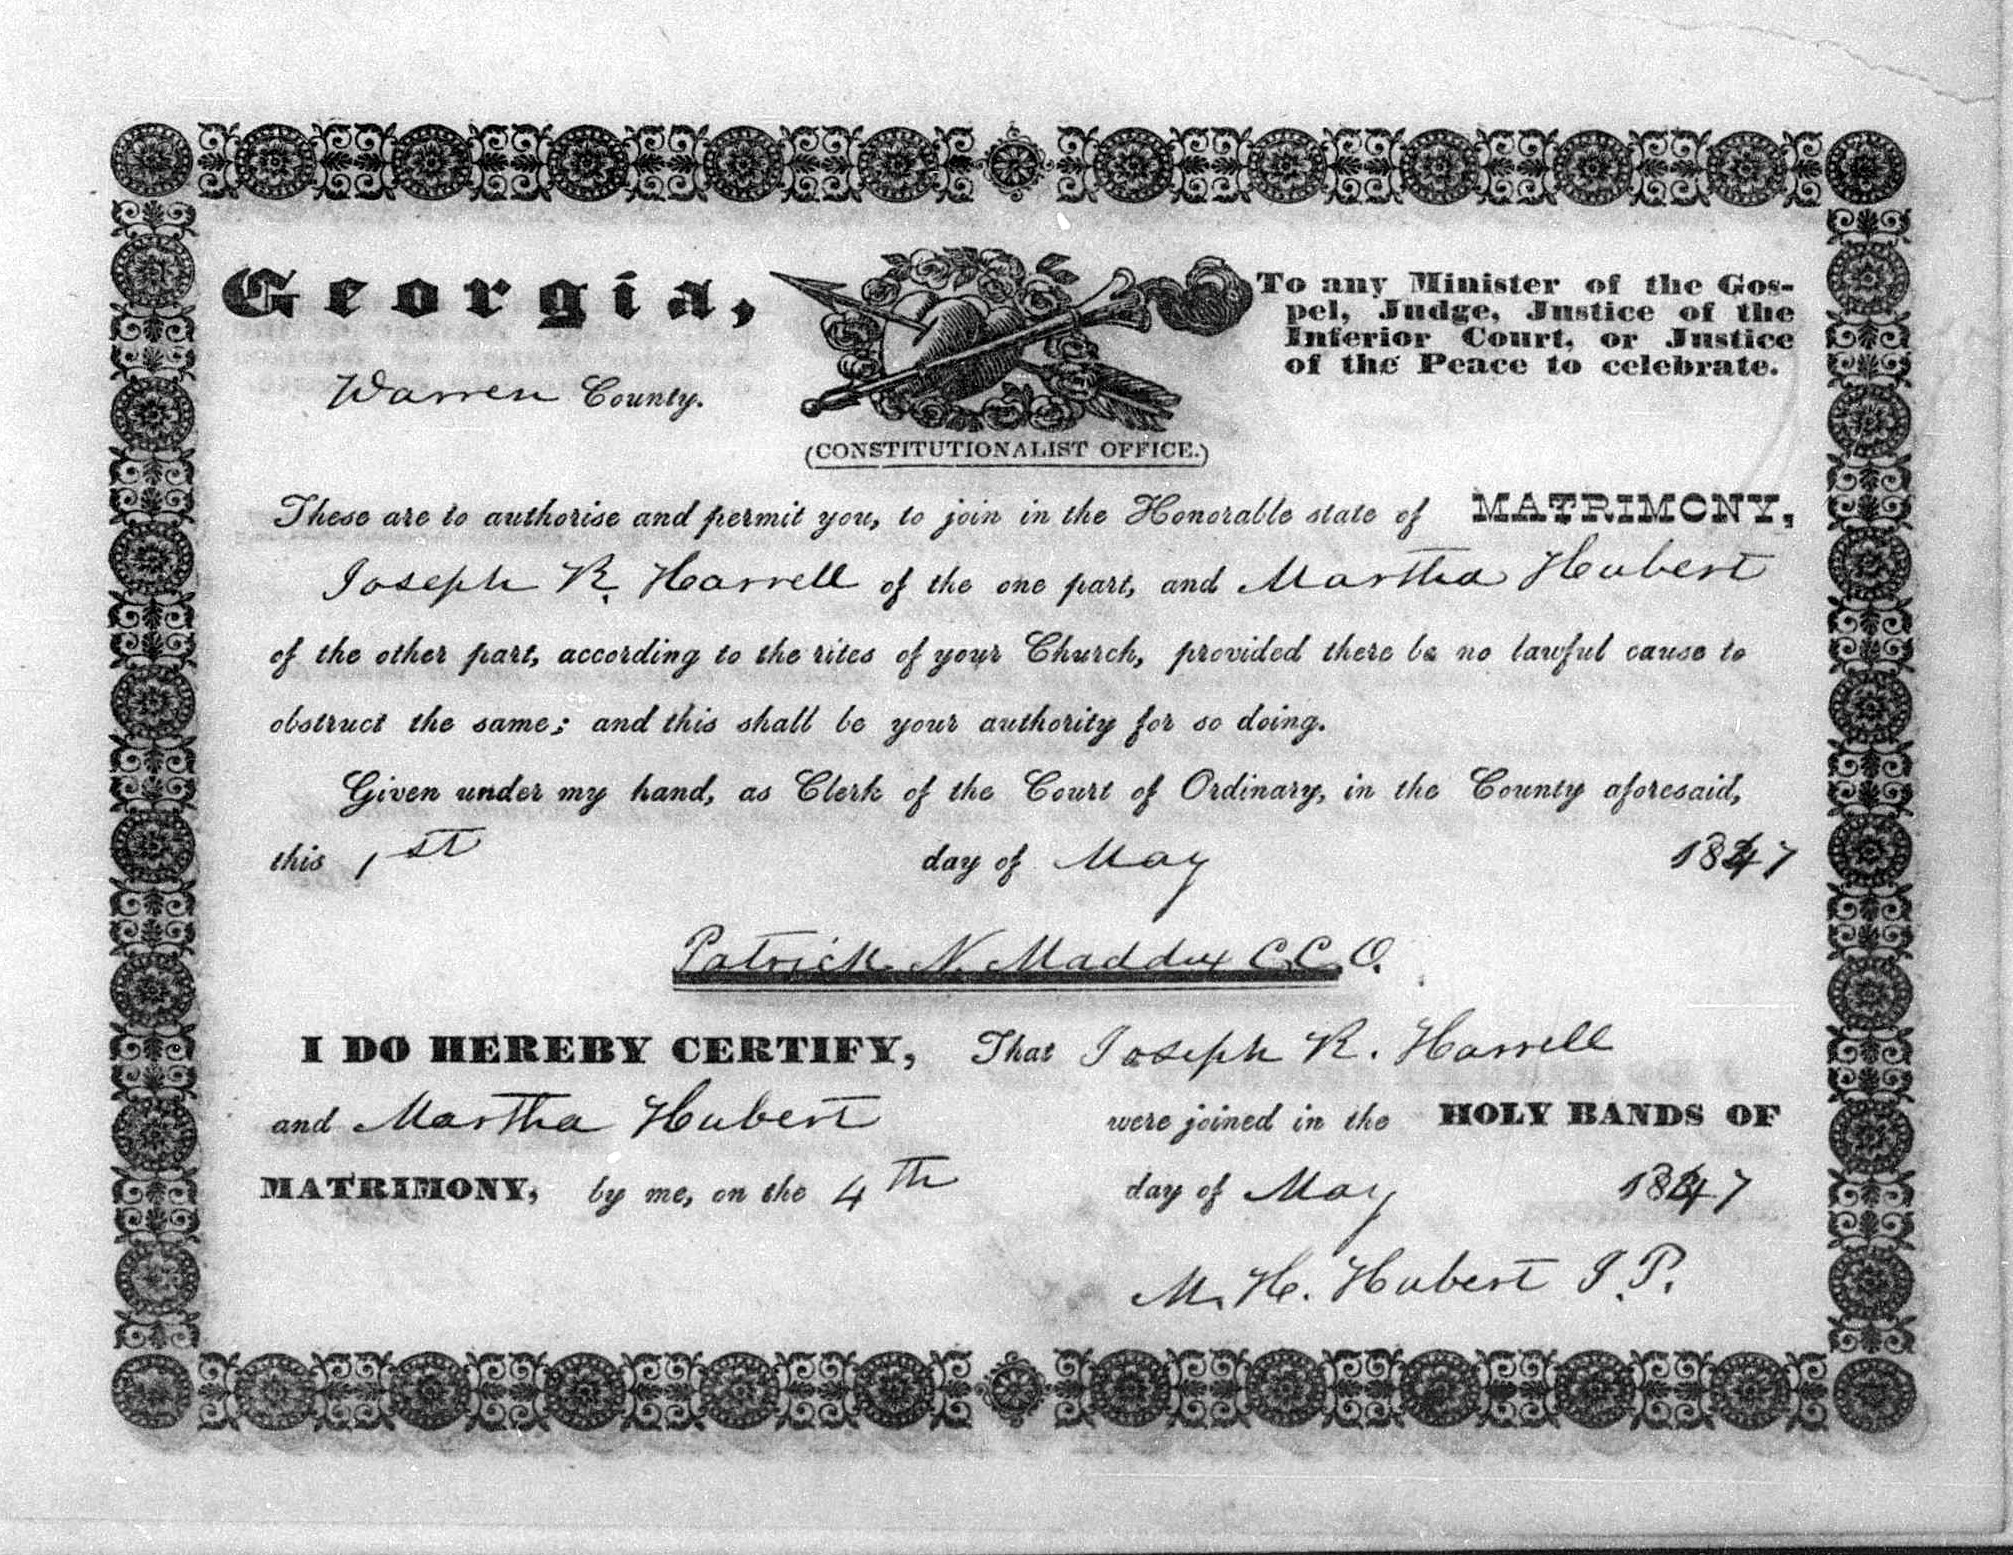 Georgia,
Warren County.
(CONSTITUTIONALIST OFFICE.)
To any Minister of the Gos-
pel, Judge, Justice of the
Inferior Court, or Justice
of the Peace to celebrate.
These are to authorise and permit you, to join in the Honorable state of MATRIMONY,
Joseph R. Harrell of the one part, and Martha Hubert
of the other part, according to the rites of your Church, provided there be no lawful cause to
obstruct the same; and this shall be your authority for so doing.
Given under my hand, as Clerk of the Court of Ordinary, in the County aforesaid,
this 1st day of May 1847
Patrick N. Maddux C.C.O.
I DO HEREBY CERTIFY, That Joseph R. Harrell
and Martha Hubert were joined in the HOLY BANDS OF
MATRIMONY, by me, on the 4th day of May 1847
M. H. Hubert J.P.